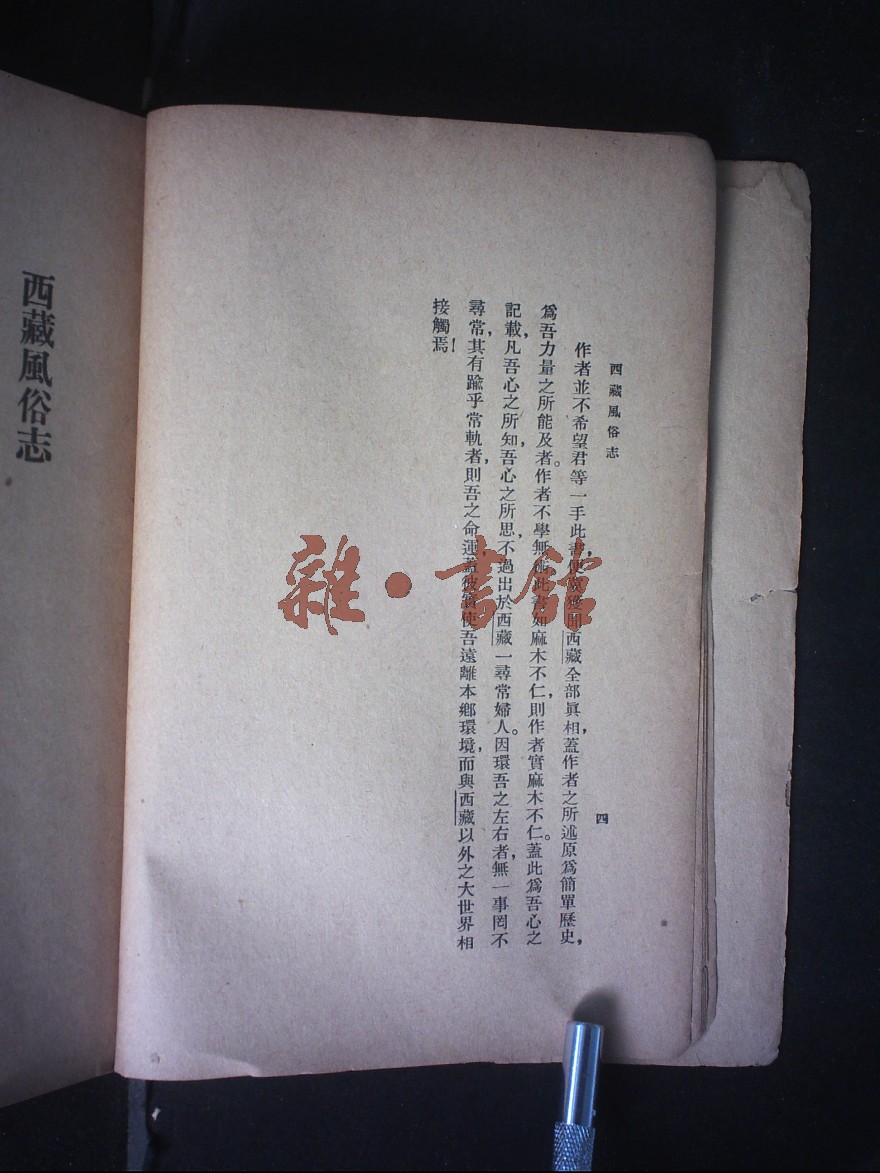 西藏風俗志
四
作者並不希望君等一手此書,便處獲聞西藏全部眞相,蓋作者之所述原爲簡單歷史,
爲吾力量之所能及者。作者不學無術此書如麻木不仁,則作者實麻木不仁。蓋此爲吾心之
記載,凡吾心之所知,吾心之所思,不過出於西藏一尋常婦人。因環吾之左右者,無一事罔不
尋常,其有踰乎常軌者,則吾之命運,蓋彼實使吾遠離本鄉環境,而與西藏以外之大世界相
接觸焉!
西藏風俗志
雜·書館